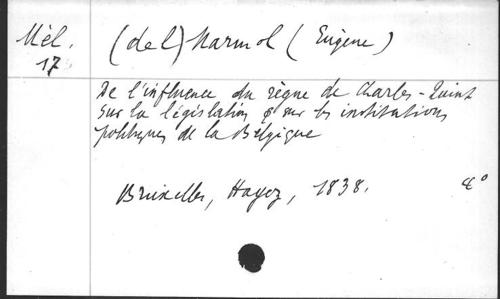 Mél. (del) Marmol (Eugène)
17
De l'influence du règne de Charles-Quint
sur la législation & sur les institutions
politiques de la Belgique
Bruxelles, Hayez, 1838. 4°